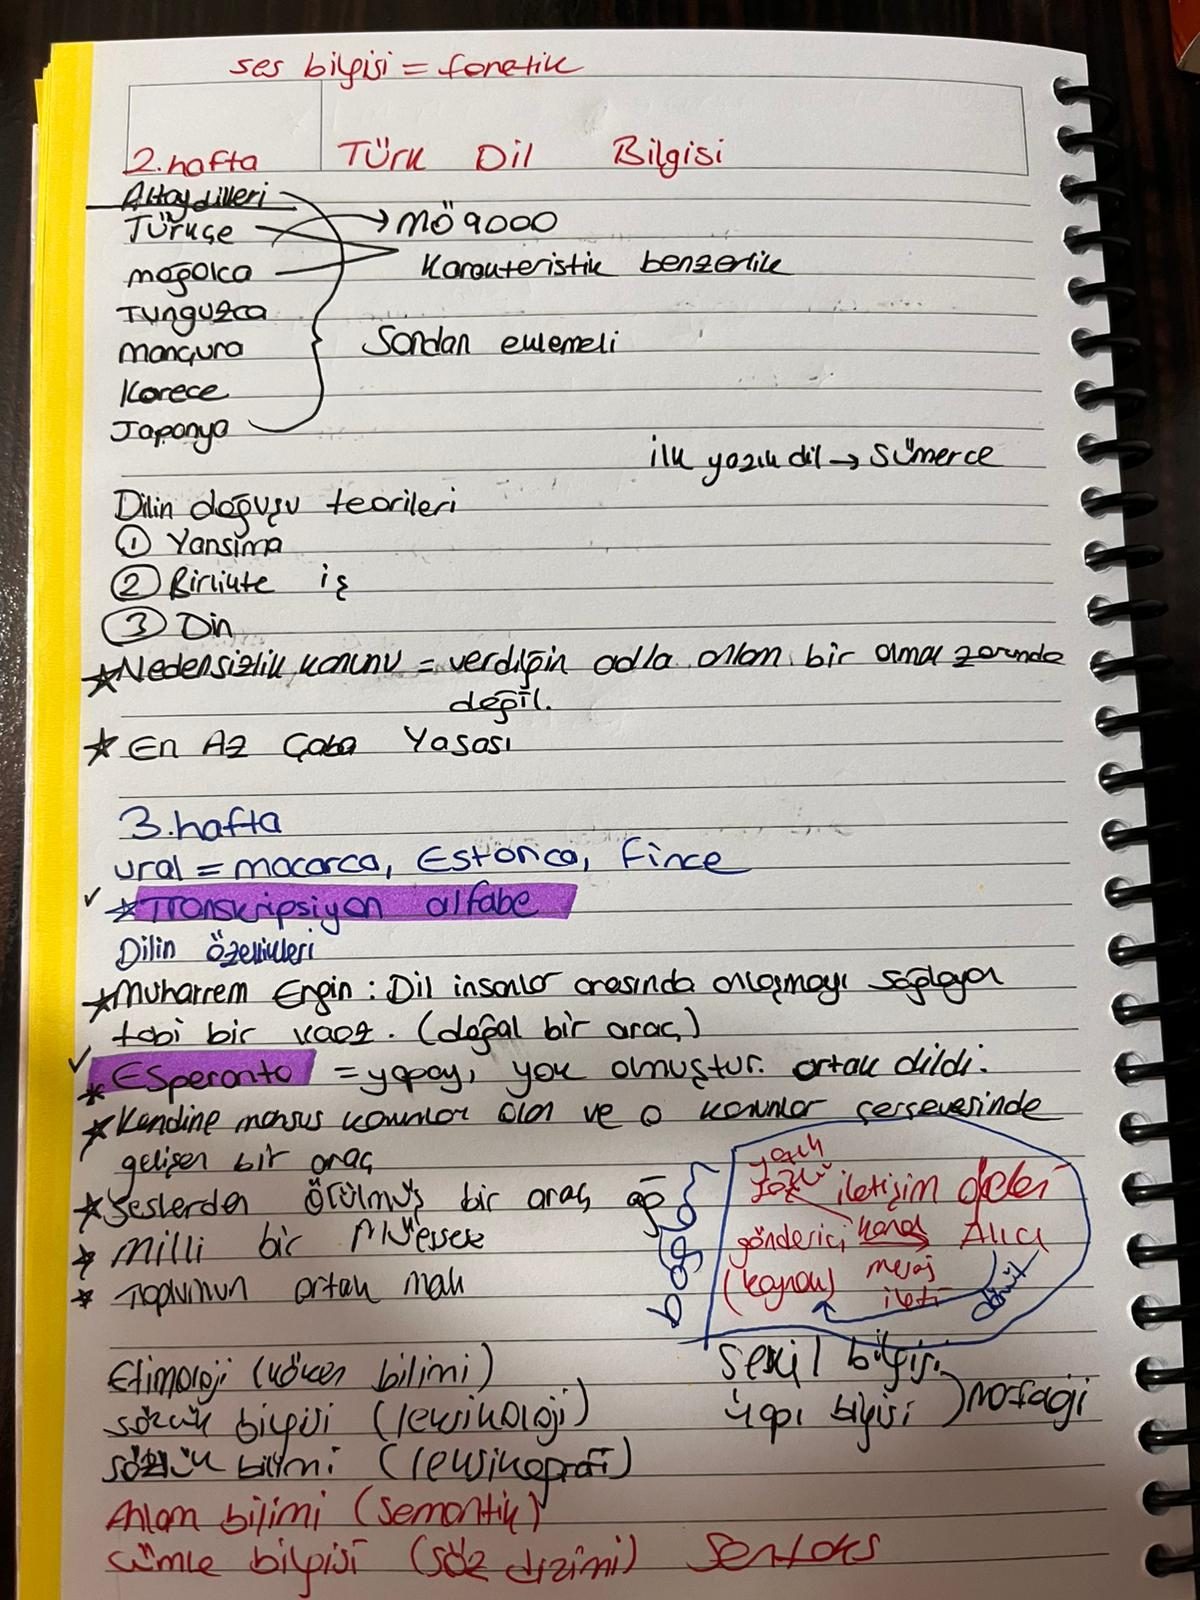 ses bilgisi = fonetik
2. hafta Türk Dil Bilgisi
Altay dilleri
Türkçe → MÖ 9000
moğolca Karakteristik benzerlik
Tunguzca
Mançura Sondan eklemeli
Korece
Japonya
ilk yazılı dil → Sümerce
Dilin doğuşu teorileri
① Yansıma
② Birlikte iş
③ Din
★ Nedensizlik kanunu = verdiğin adla anlam bir olmak zorunda
değil.
★ En Az Çaba Yasası
3. hafta
ural = macarca, Estonca, Fince
✓ ★ Transkripsiyon alfabe
Dilin özellikleri
★ Muharrem Ergin : Dil insanlar arasında anlaşmayı sağlayan
tabi bir vasıta. (doğal bir araç)
✓ ★ Esperanto = yapay, yok olmuştur. ortak dildi.
★ Kendine mahsus kanunlar olan ve o kanunlar çerçevesinde
gelişen bir araç
★ Seslerden örülmüş bir araç ağ
★ Milli bir Müessese
★ Toplumun ortak malı
bağlam
sözlü iletişim
gönderici kanal Alıcı
(kaynak) mesaj
ileti
dönüt
Etimoloji (köken bilimi)
sözcük bilgisi (leksikoloji)
sözlük bilimi (leksikografi)
Şekil bilgisi
yapı bilgisi ) Mofoloji
Anlam bilimi (semantik)
cümle bilgisi (söz dizimi) Sentaks